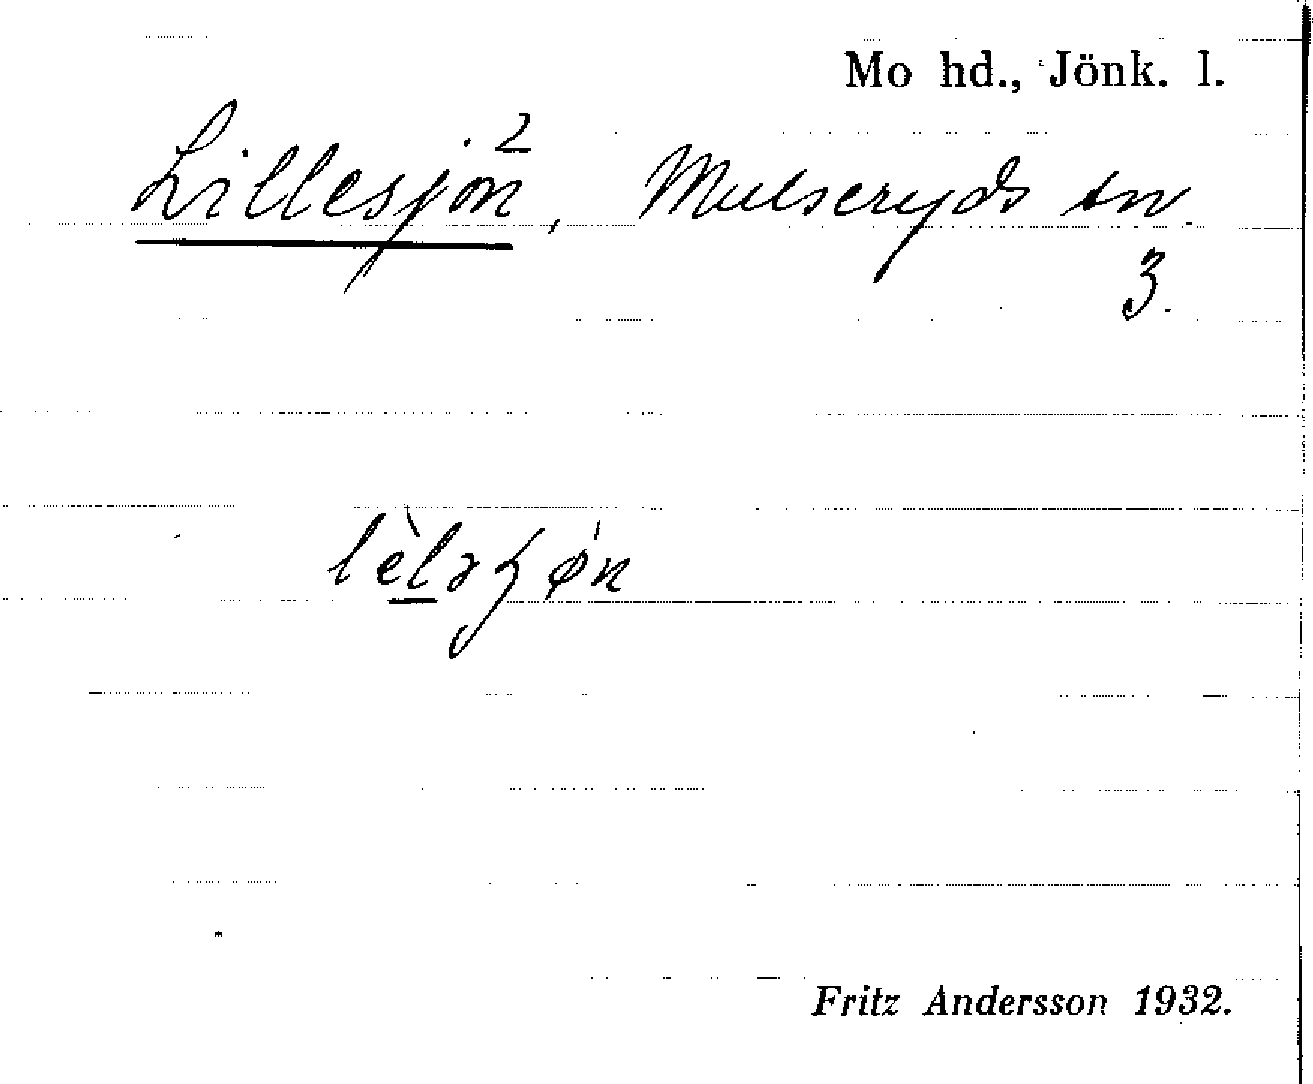 Mo hd., Jönk. l.
Lillesjön², Mulseryds sn.
3.
Fritz Andersson 1932.